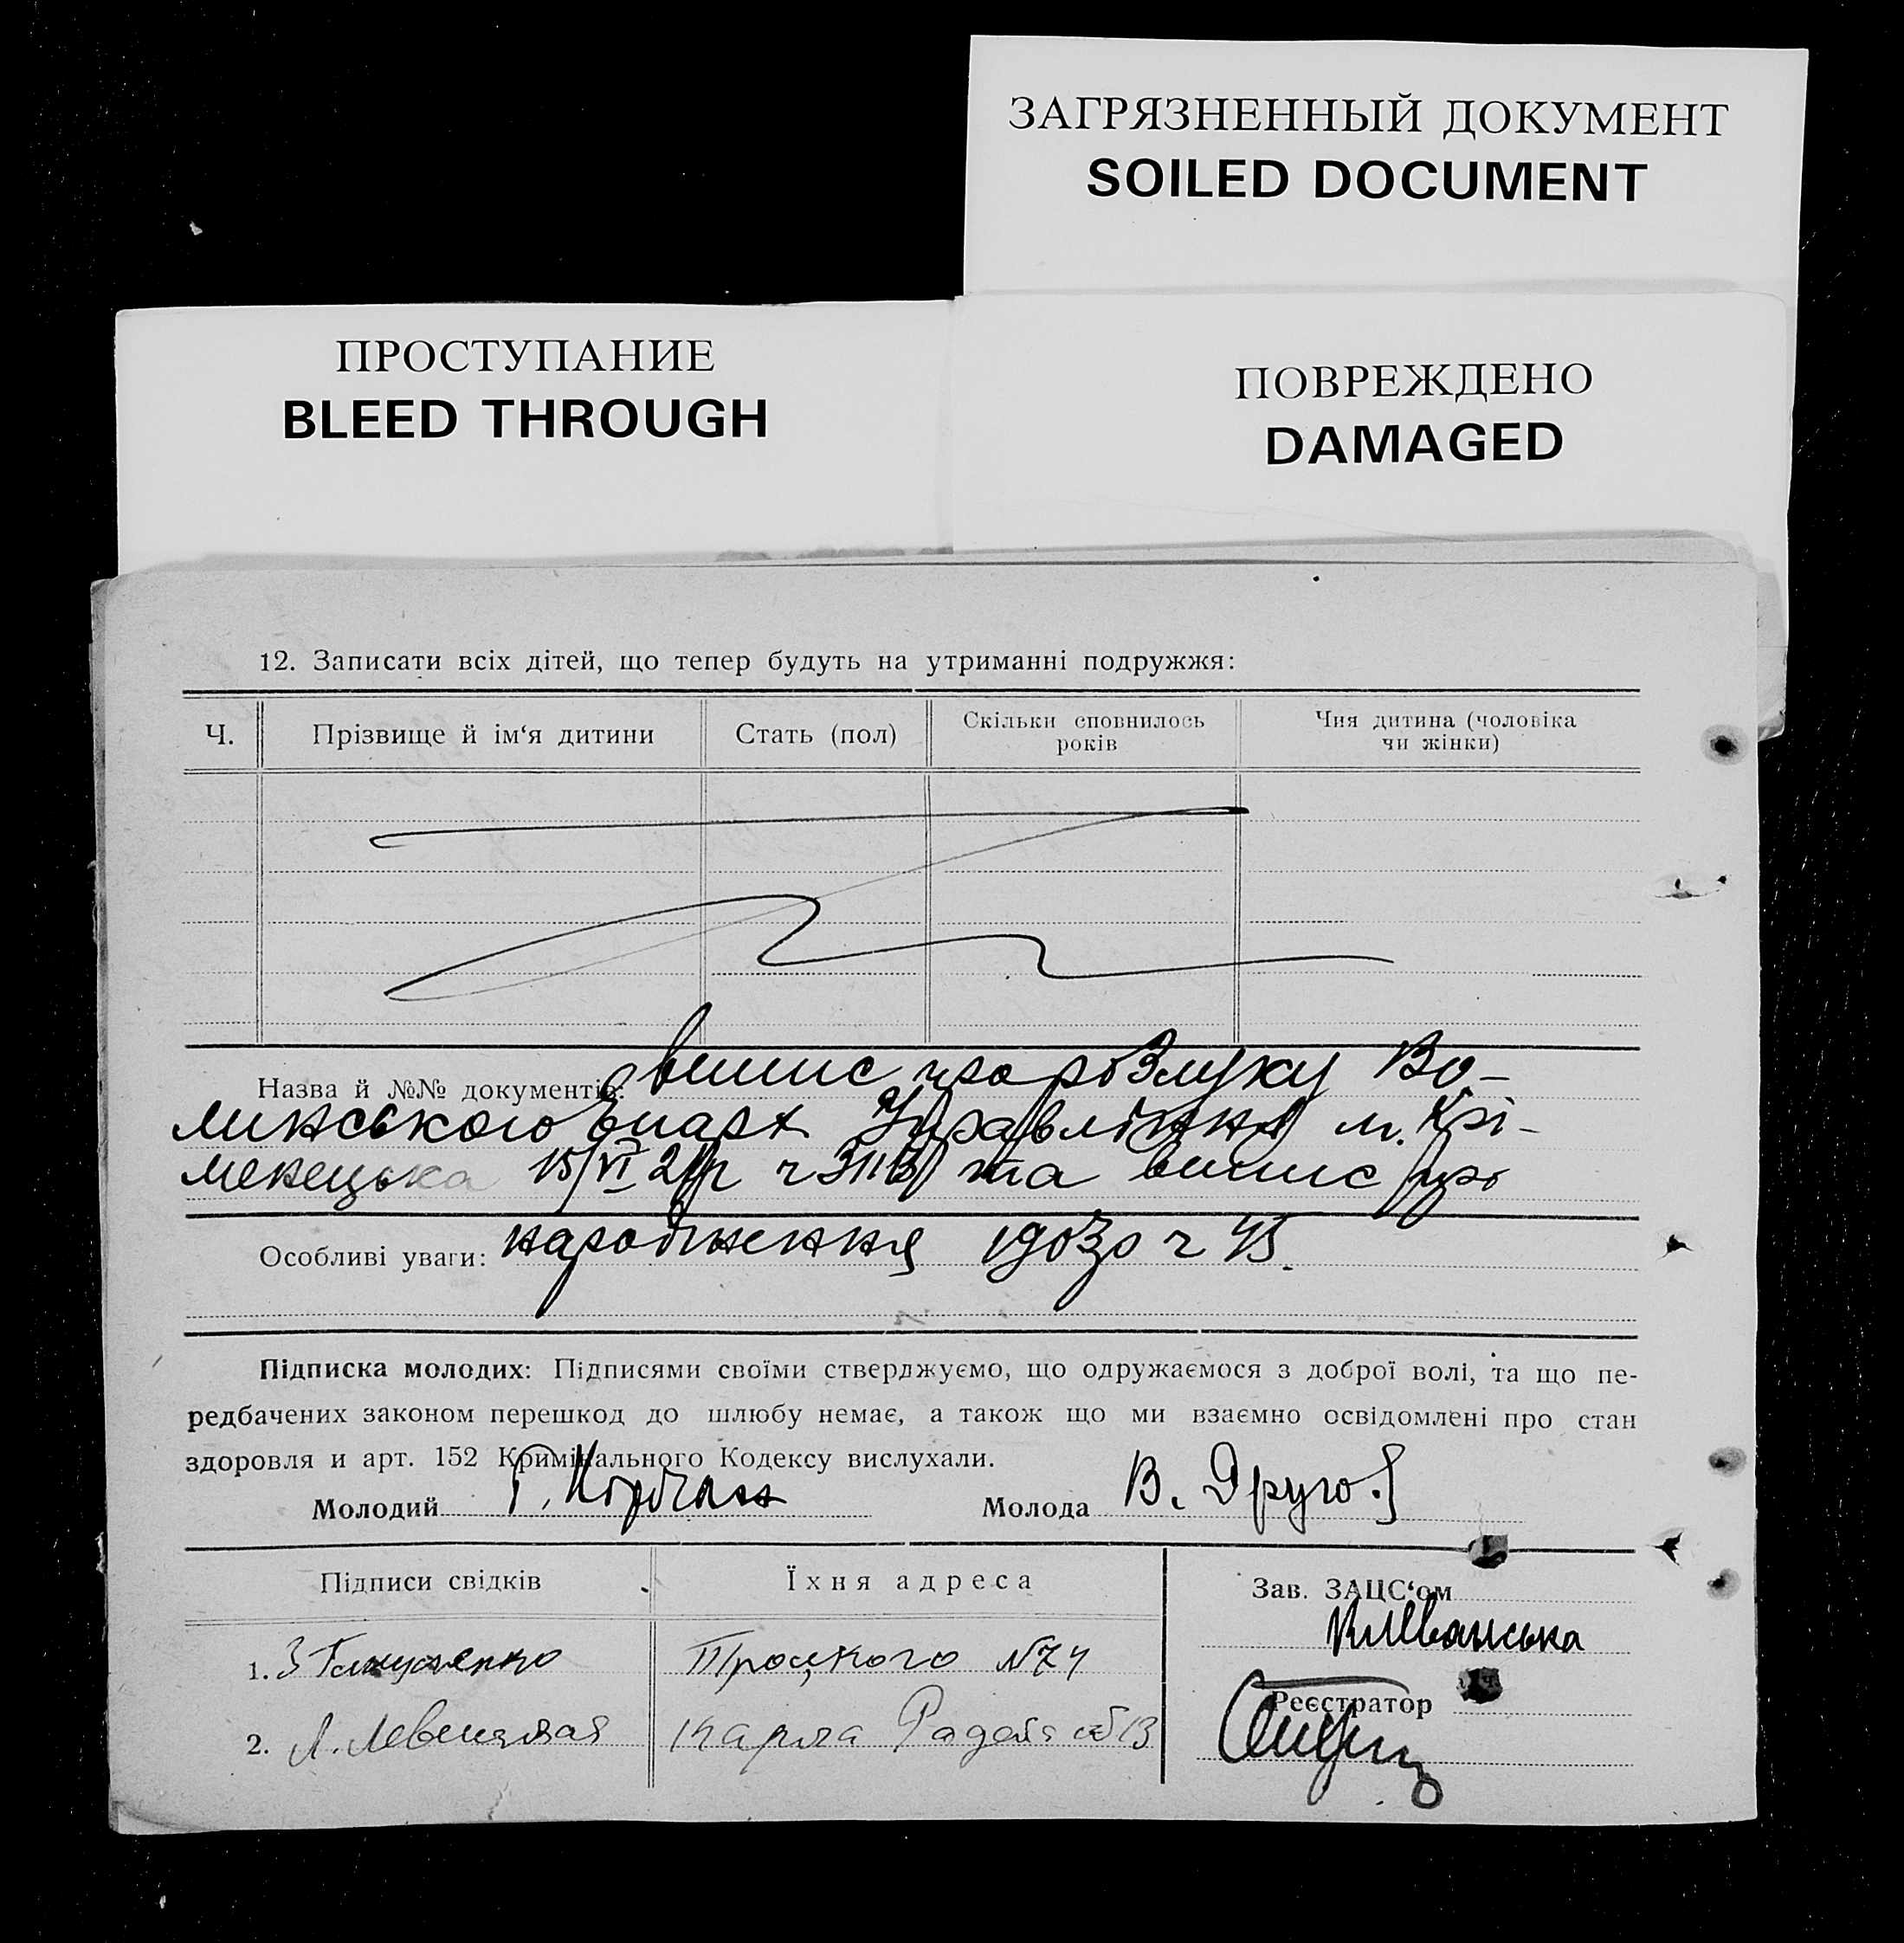 ЗАГРЯЗНЕННЫЙ ДОКУМЕНТ
SOILED DOCUMENT
ПРОСТУПАНИЕ
BLEED THROUGH
ПОВРЕЖДЕНО
DAMAGED
12. Записати всіх дітей, що тепер будуть на утриманні подружжя:
Ч. Прізвище й ім‘я дитини Стать (пол) Скільки сповнилось років Чия дитина (чоловіка чи жінки)
Назва й №№ документів: випис про розлуку Во-
линського Епарх Управління м. Крі-
менецька 15/VI 21р ч 3113 та випис про
Особливі уваги: народження 1903р ч 45.
Підписка молодих: Підписями своїми стверджуємо, що одружаємося з доброї волі, та що пе-
редбачених законом перешкод до шлюбу немає, а також що ми взаємно освідомлені про стан
здоровля и арт. 152 Кримінального Кодексу вислухали.
Молодий Молода В.
Підписи свідків Їхня адреса Зав. ЗАЦС‘ом
1. З Троцького №74
Реєстратор
2. Л. Карла